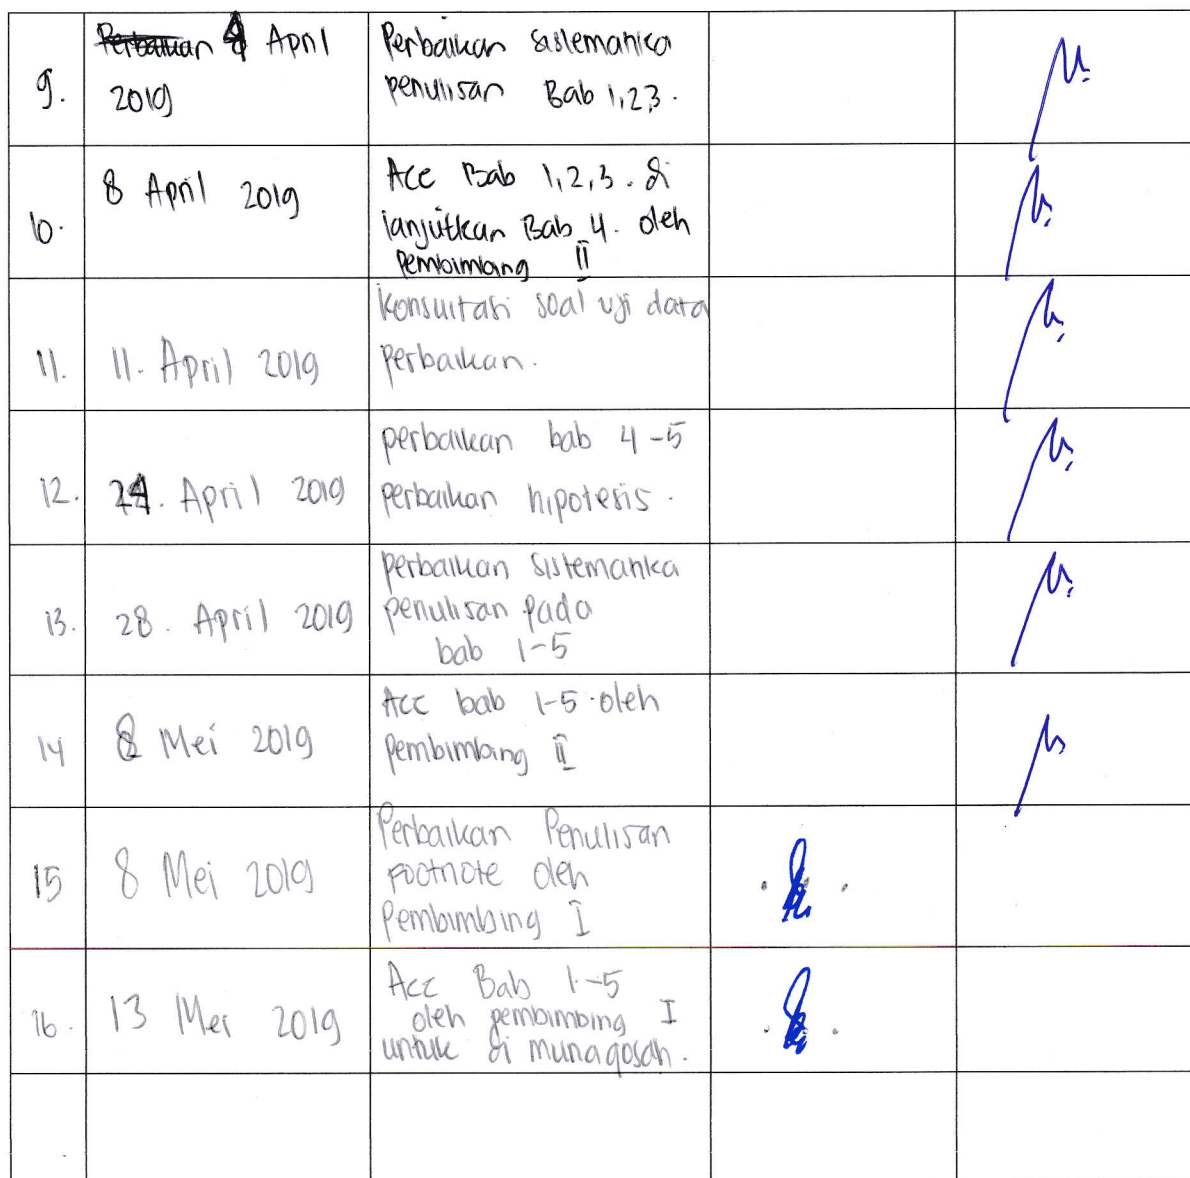 9.
4 April
2019
Perbaikan sistematika
penulisan Bab 1,2,3.
10.
8 April 2019
Acc Bab 1,2,3. di
lanjutkan Bab 4. oleh
Pembimbing II
11.
11. April 2019
Konsultasi soal uji data
Perbaikan.
12.
24. April 2019
perbaikan bab 4-5
perbaikan hipotesis.
13.
28. April 2019
perbaikan sistematika
penulisan pada
bab 1-5
14
8 Mei 2019
Acc bab 1-5 oleh
Pembimbing II
15
8 Mei 2019
Perbaikan Penulisan
Footnote oleh
Pembimbing I
16.
13 Mei 2019
Acc Bab 1-5
oleh pembimbing I
untuk di munaqosah.